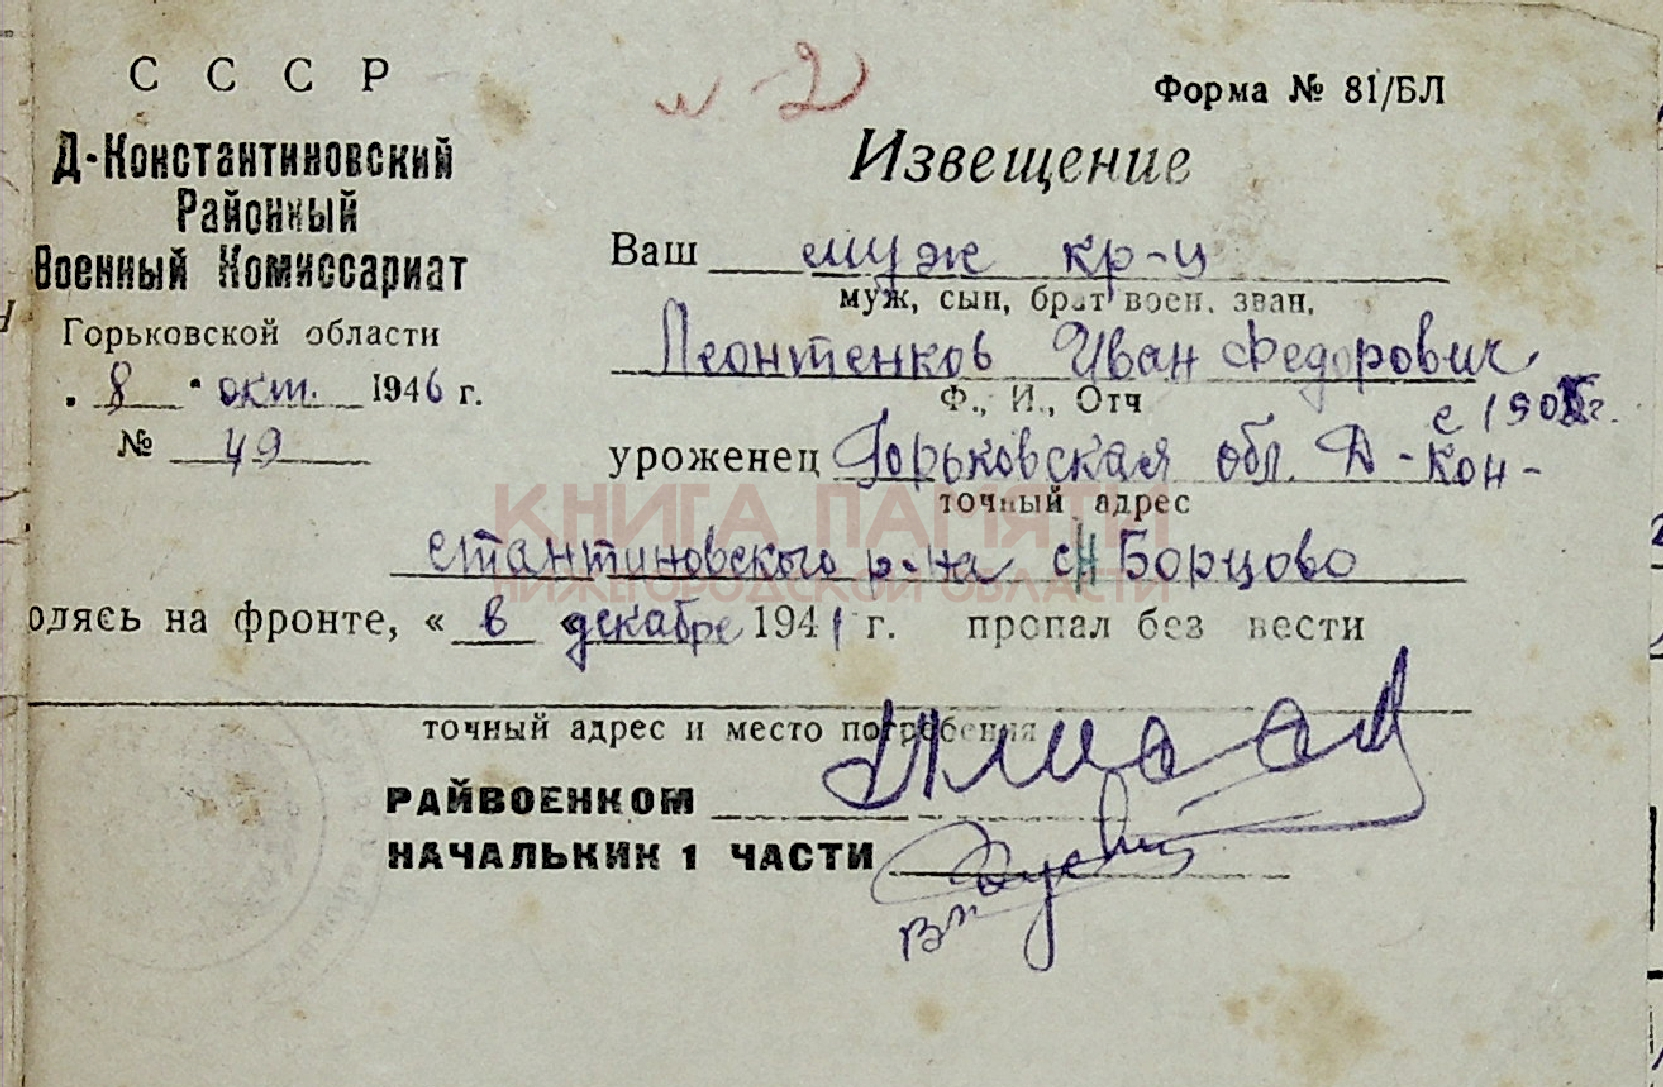 С С С Р
Д-Константиновский
Районный
Военный Комиссариат
Горьковской области
„ 8 " окт. 1946 г.
№ 49
№ 2
Форма № 81/БЛ
Извещение
Ваш муж кр-ц
муж, сын, брат воен. зван.
Леонтенков Иван Федорович
Ф., И., Отч
с 190 г.
уроженец Горьковская обл. Д-Кон-
точный адрес
КНИГА ПАМЯТИ
стантиновского р-на Борцово
НИЖЕГОРОДСКОЙ ОБЛАСТИ
одясь на фронте, « в декабре 1941 г. пропал без вести
точный адрес и место погребения
РАЙВОЕНКОМ
НАЧАЛЬНИК 1 ЧАСТИ